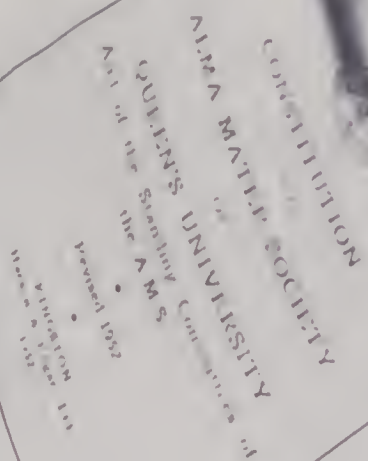 CONSTITUTION
ALMA MATER SOCIETY
QUEEN'S UNIVERSITY
And of the Standing Committees of
the A M S
Revised 1952
KINGSTON
1952